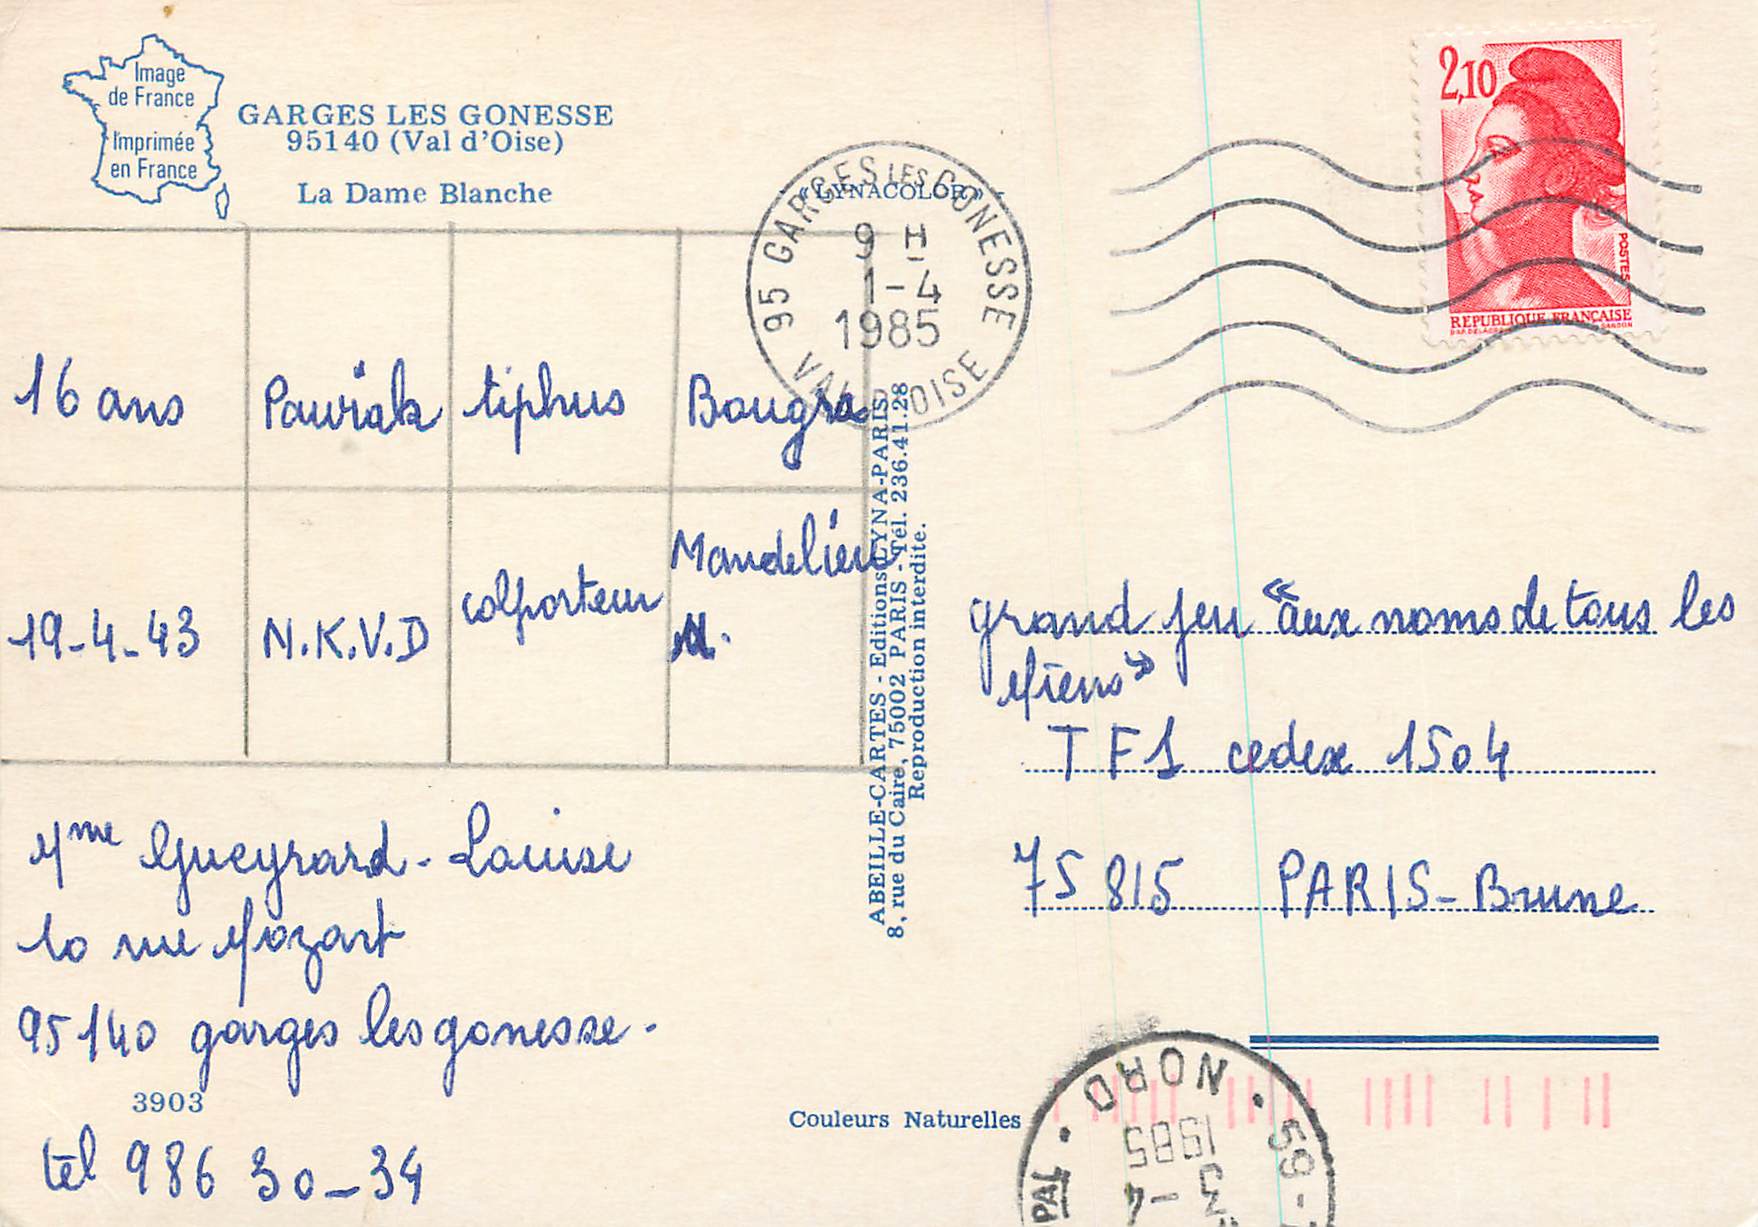 Image
de France
Imprimée
en France
GARGES LES GONESSE
95140 (Val d'Oise)
La Dame Blanche
"LYNACOLOR"
95 GARGES LES GONESSE
9 H
1-4
1985
VAL OISE
2,10
POSTES
REPUBLIQUE FRANÇAISE
16 ans Pawiak tiphus Bougra
19-4-43 N.K.V.D colporteur Mandelieu
M.
ABEILLE-CARTES - Editions LYNA-PARIS
8, rue du Caire, 75002 PARIS - Tél. 236.41.28
Reproduction interdite.
grand jeu "aux noms de tous les
Miens"
TF1 cedex 1504
75815 PARIS-Brune
Mme Gueyrard - Louise
10 rue Mozart
95140 garges les gonesse.
3903
tèl 986 30-34
Couleurs Naturelles
NORD
59-
1985
-4
PAL